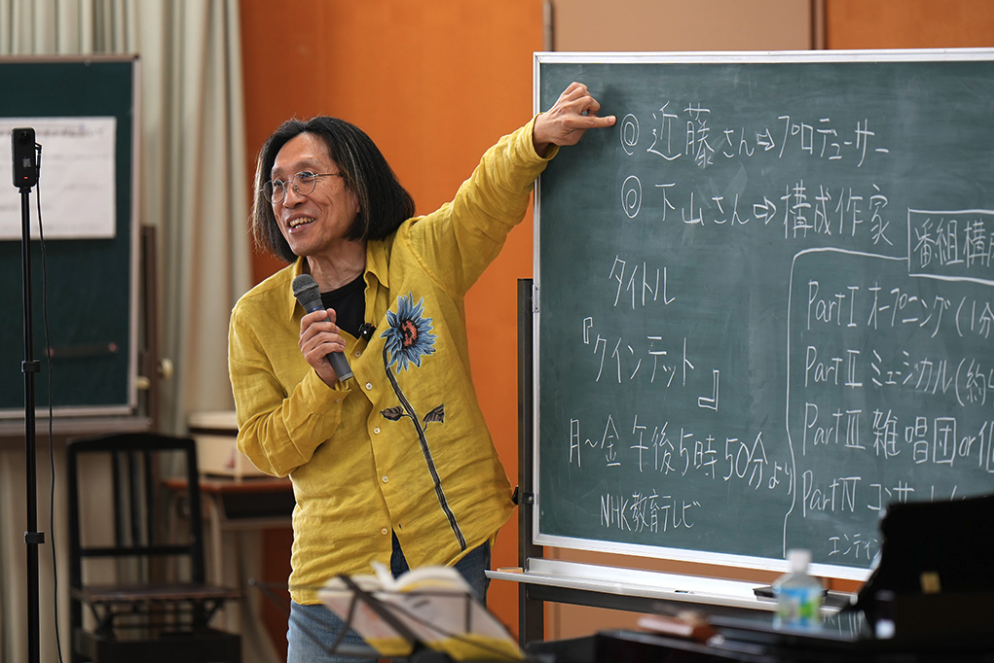 ◎ 近藤さん⇨プロデューサー
◎ 下山さん⇨構成作家
タイトル
『クインテット』
月～金 午後5時50分より
NHK教育テレビ
番組構成
PartⅠ オープニング(1分
PartⅡ ミュージカル(約4
PartⅢ 雑唱団or
PartⅣ コンサート
エンディ